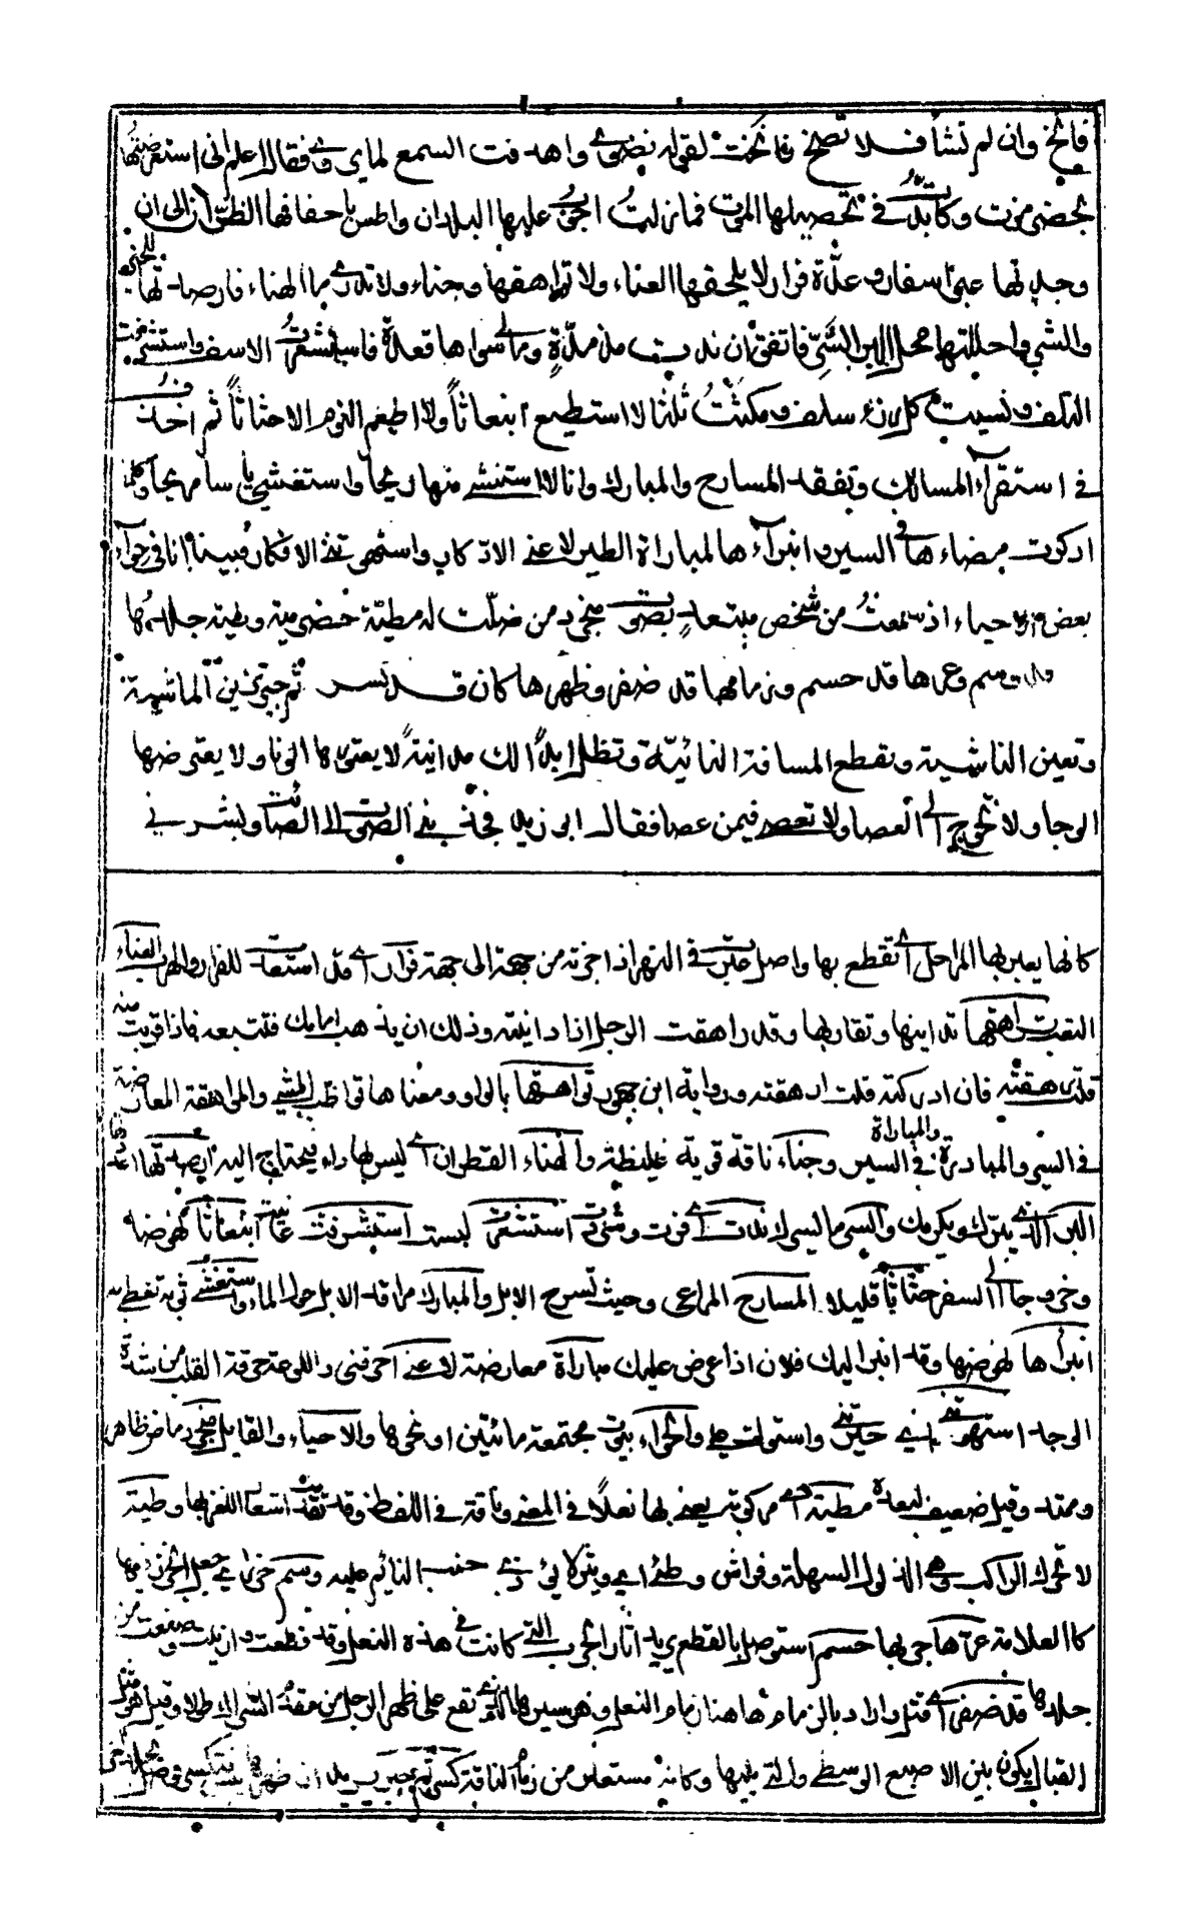 فانخ وان لم تشأ فلا تصخ فانخت لقوله نضوى واهدفت السمع لما يروى فقال اعلم انى استعرضتها
بحضرموت وكابدت فى تحصيلها الموت فما زلت اجوب عليها البلدان واطس باخفافها الظران الى ان
وجدتها عبر اسفار وعدة قرار لا يلحقها العناء ولا تراهقها وجناء ولا تدرى ما الهناء فارصدتها للخير
والشر واحللتها محل البر السر فاتفق ان ندت مذ مدة ومالى سواها قعدة فاستشعرت الاسف واستشرفت
التلف ونسيت كل رزء سلف ومكثت ثلثا لا استطيع انبعاثا ولا اطعم النوم الا حثاثا ثم اخذت
فى استقراء المسالك وتفقد المسارح والمبارك وانا لا استنشى منها ريحا ولا استغشى يأسا مريحا وكلما
ادكرت مضاءها فى السير وانبراءها لمباراة الطير لاعنى الادكار واستهوتنى الافكار فبينا انا فى حواء
بعض الاحياء اذ سمعت من شخص متبعد وصوت متجرد من ضلت له مطية حضرمية وطية جلدها
قد وسم وعرها قد حسم وزمامها قد ضفر وظهرها كان قد كسر ثم جبر تزين الماشية
وتعين الناشية وتقطع المسافة النائية وتظل ابدا لك مدانية لا يعتورها الونا ولا يعترضها
الوجا ولا تحوج الى العصا ولا تعصى فيمن عصا فقال ابو زيد فجذبنى الصوت الى الصائت وبشرنى
كانها يعبر بها المراحل اى تقطع بها واصل عبرت فى النهر اذا جزته من جهة الى جهة قرار اى استعدت للفرار والهرب العناء
التعب تراهقها تدانيها وتقاربها وقد راهقت الرجل اذا دانيته وذلك ان يذهب امامك فتتبعه فاذا قربت منه
قلت رهقته فان ادركته قلت ارهقته ورواية ابن جهور تواهقها بالواو ومعناها تواظب المشى والمواهقة المعارضة
فى السير والمبادرة والمباراة فى السير وجناء ناقة قوية غليظة والهناء القطران اى ليس بها داء فيحتاج اليه ارصدتها اعددتها
البر الذى يبرك ويكرمك والسر ما ليسر لا ندت اى فرت وشردت استشعرت لبست استشرفت عاينت انبعاثا نهوضا
وخروجا الى السفر حثاثا قليلا المسارح المراعى وحيث تسرح الابل والمبارك مراقد الابل حول الماء واستغشى ثوبه تغطى به
انبراءها نهوضها وقد انبرا اليك فلان اذا عرض عليك مباراة معارضة لاعنى احرقنى واللوعة حرقة القلب من شدة
الوجد استهوتنى اى حيرتنى واستولت على والحواء بيوت مجتمعة مائتين او نحوها والاحياء والقبايل متجرد ماض ظاهر
وممتد وقيل ضعيف لبعده مطية اى مركوبة يعنى بها نعلا فى المعنى وناقة فى اللفظ وقد تقدمت اشعار اللغز بها وطية
لا تحرك الراكب وهى الذلول السهلة وفراش وطئ اى وثير لا يؤذى جنب النائم عليه وسم حزاى جعل الحز فيها
كالعلامة عرها جربها حسم استوصل بالقطع يريد اثار الجرب التى كانت فى هذه النعل وقد قطعت وازيلت وصنعت من
جلدها قد ضفر اى فتل واراد بالزمام هاهنا زمام النعل وهو سيرها الذى تقع على ظهر الرجل من عقدة الشراك طولا وقيل هو مثل
القبال يكون بين الاصبع الوسطى والتى يليها وكانه مستعار من زمام الناقة كسر ثم جبر يريد ان ظهرها